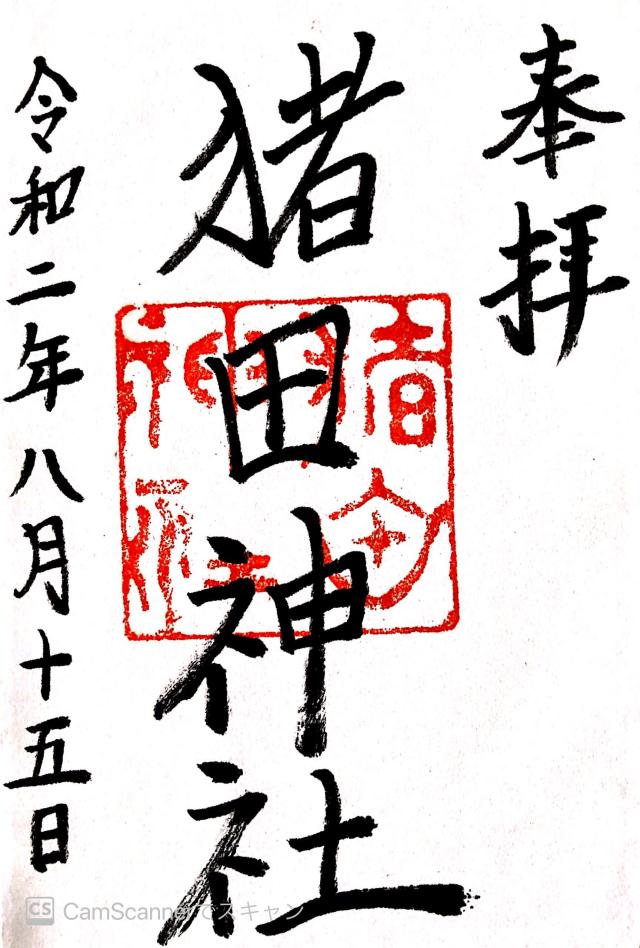 奉拝
猪田神社
令和二年八月十五日
CS CamScannerでスキャン